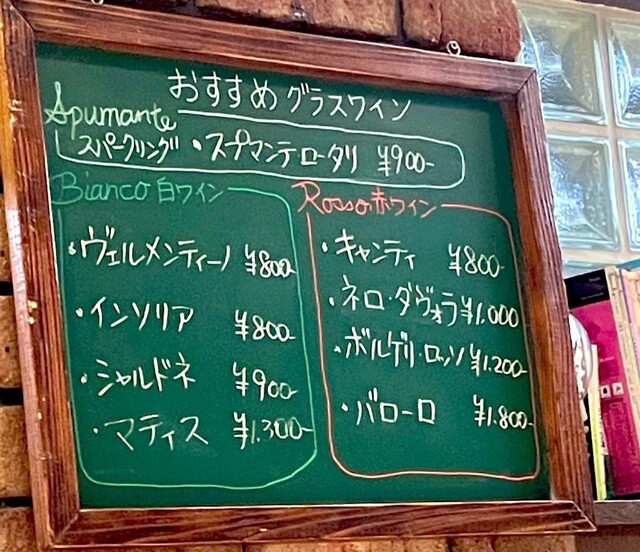 おすすめグラスワイン
Spumante
スパークリング・スプマンテロータリ ¥900-
Bianco 白ワイン
・ヴェルメンティーノ ¥800-
・インソリア ¥800-
・シャルドネ ¥900-
・マティス ¥1.300-
Rosso赤ワイン
・キャンティ ¥800-
・ネロ・ダヴォラ¥1.000
・ボルゲリ・ロッソ¥1.200-
・バローロ ¥1.800-